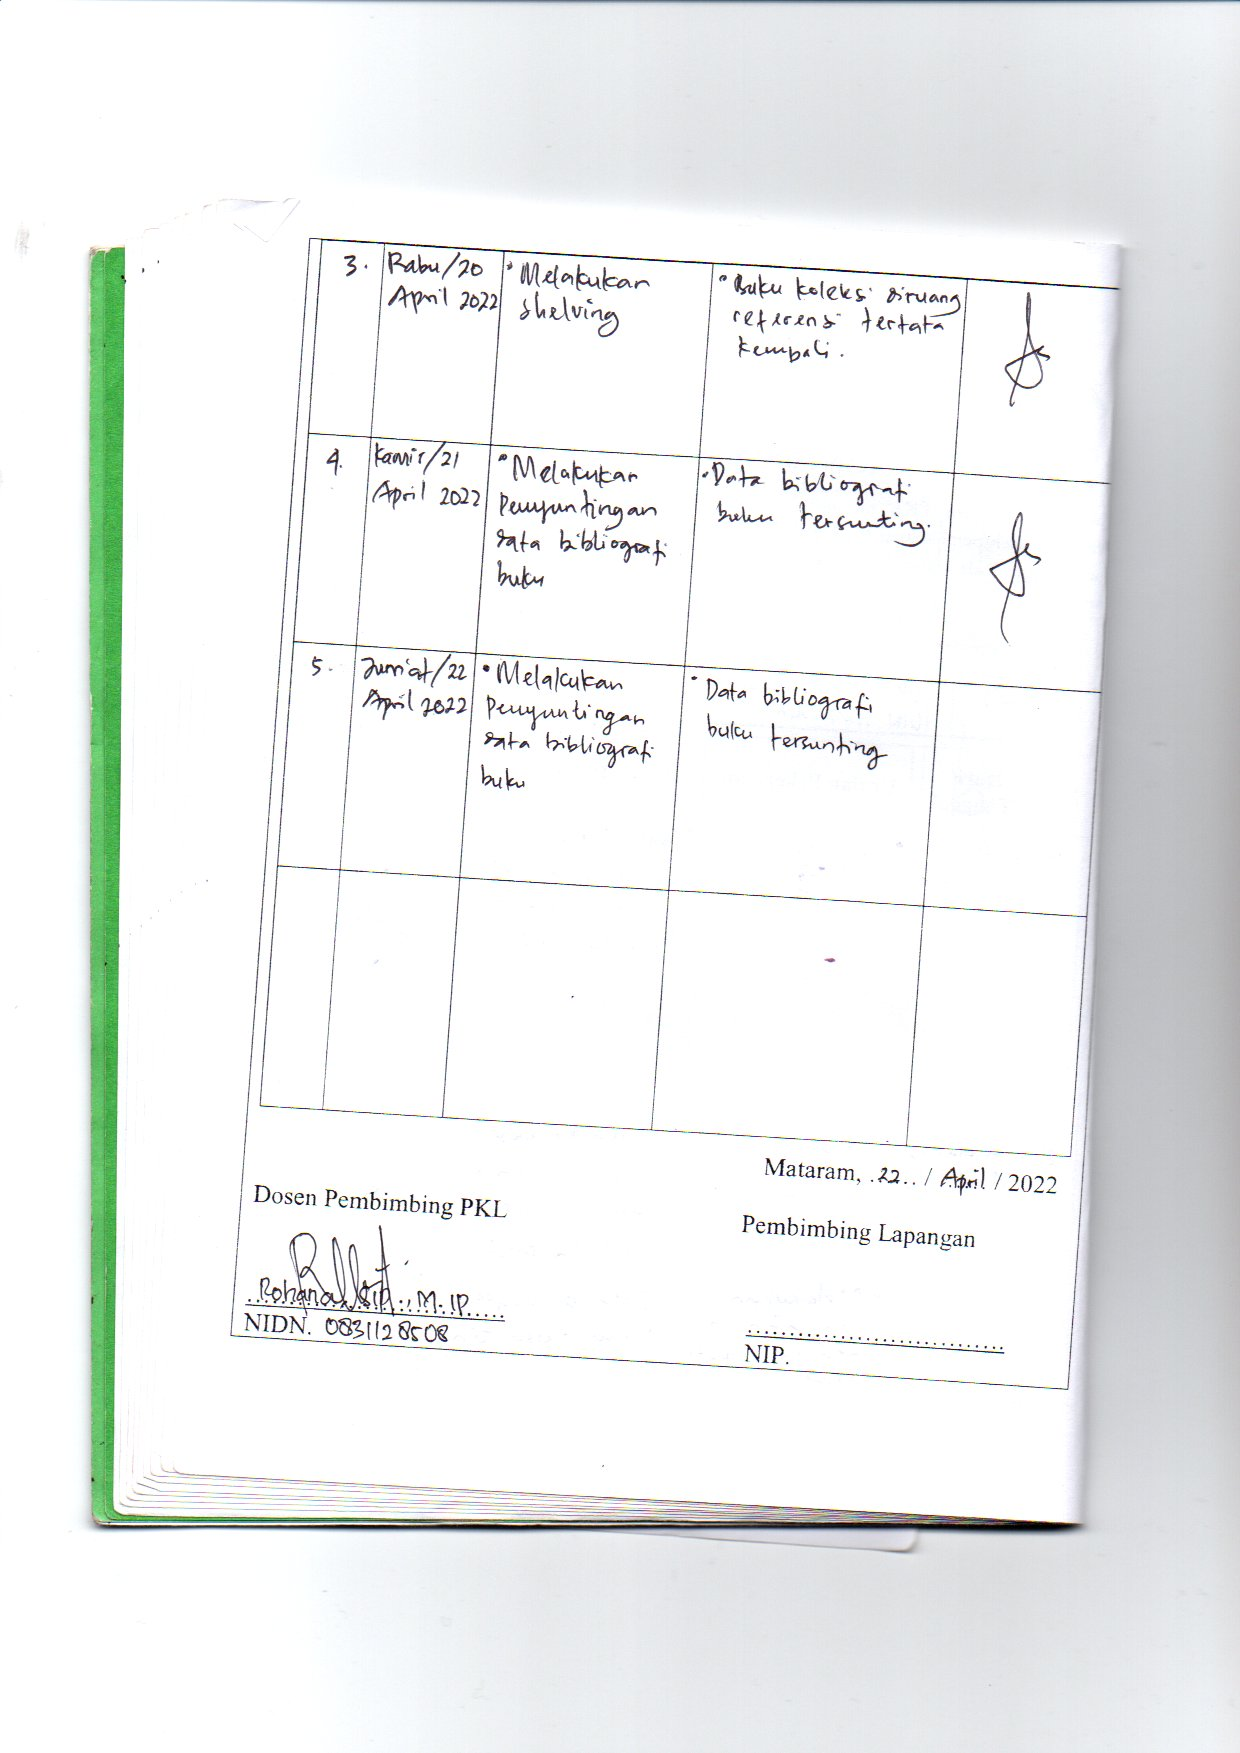 3. Rabu/20 April 2022
• Melakukan
shelving
• Buku koleksi diruang
referensi tertata
kembali.
4. Kamis/21
April 2022
• Melakukan
Penyuntingan
data bibliografi
buku
• Data bibliografi
buku tersunting.
5. Jum'at/22
April 2022
• Melakukan
Penyuntingan
data bibliografi
buku
• Data bibliografi
buku tersunting
Mataram, .22.. / April / 2022
Dosen Pembimbing PKL
Pembimbing Lapangan
Rohana, S.IP., M.IP
NIDN. 0831128508
NIP.